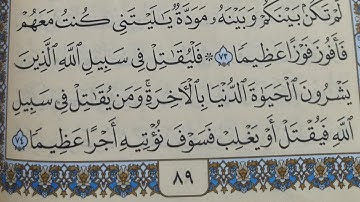 لَمْ تَكُنۢ بَيْنَكُمْ وَبَيْنَهُۥ مَوَدَّةٌ يَٰلَيْتَنِى كُنتُ مَعَهُمْ
فَأَفُوزَ فَوْزًا عَظِيمًا ٧٣ ۞ فَلْيُقَٰتِلْ فِى سَبِيلِ ٱللَّهِ ٱلَّذِينَ
يَشْرُونَ ٱلْحَيَوٰةَ ٱلدُّنْيَا بِٱلْءَاخِرَةِ ۚ وَمَن يُقَٰتِلْ فِى سَبِيلِ
ٱللَّهِ فَيُقْتَلْ أَوْ يَغْلِبْ فَسَوْفَ نُؤْتِيهِ أَجْرًا عَظِيمًا ٧٤
٨٩